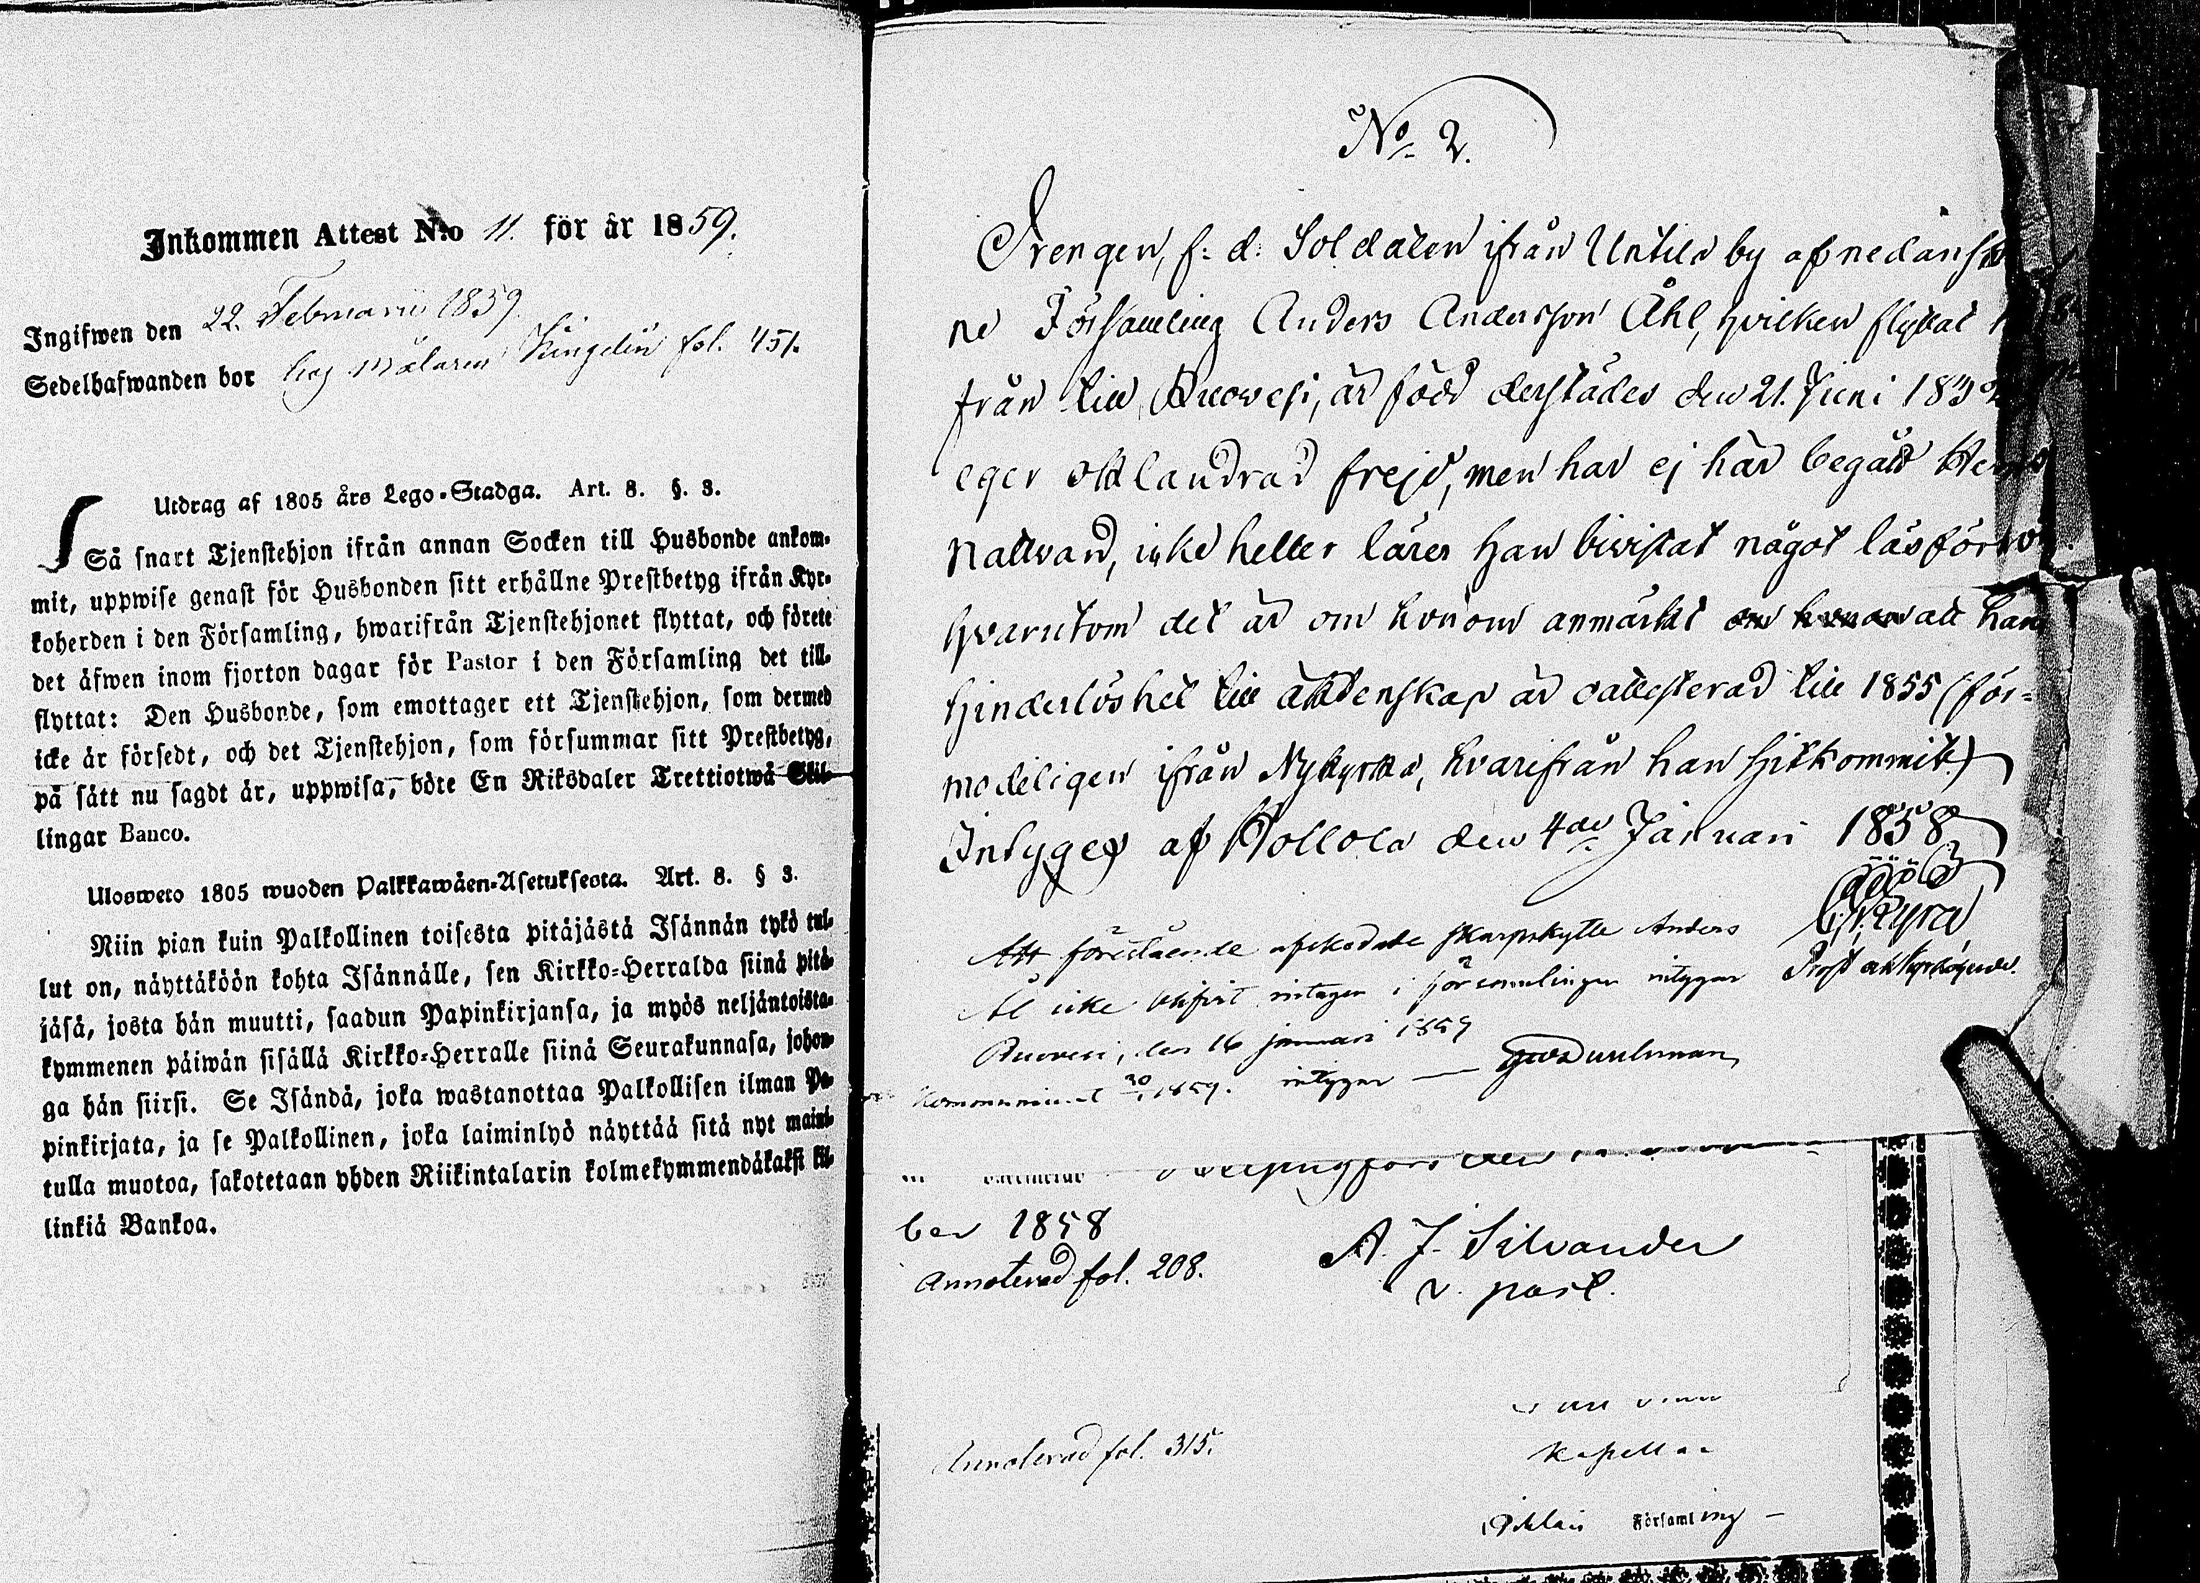 Inkommen Attest N:o 11. för år 1859.
Ingifwen den 22. Februarii 1859.
Sedelhafwanden bor hos Målaren fol. 451.
Utdrag af 1805 års Lego-Stadga. Art. 8. §. 3.
Så snart Tjenstehjon ifrån annan Socken till Husbonde ankom-
mit, uppwise genast för Husbonden sitt erhållne Prestbetyg ifrån Kyr-
koherden i den Församling, hwarifrån Tjenstehjonet flyttat, och förete
det äfwen inom fjorton dagar för Pastor i den Församling det till-
flyttat: Den Husbonde, som emottager ett Tjenstehjon, som dermed
icke är försedt, och det Tjenstehjon, som försummar sitt Prestbetyg,
på sätt nu sagdt är, uppwisa, böte En Riksdaler Trettiotwå Skil-
lingar Banco.
Ulosweto 1805 wuoden Palkkawäen-Asetuksesta. Art. 8. § 3.
Niin pian kuin Palkollinen toisesta pitäjästä Isännän tykö tul-
lut on, näyttäköön kohta Isännälle, sen Kirkko-Herralda siinä pitä-
jäsä, josta hän muutti, saadun Papinkirjansa, ja myös neljäntoista-
kymmenen päiwän sisällä Kirkko-Herralle siinä Seurakunnasa, johon-
ga hän siirsi. Se Isändä, joka wastanottaa Palkollisen ilman Pa-
pinkirjata, ja se Palkollinen, joka laiminlyö näyttää sitä nyt maini-
tulla muotoa, sakotetaan yhden Riikintalarin kolmekymmendäkaksi kil-
linkiä Bankoa.
No 2.
Drengen, f: d: Soldaten ifrån Untila by af nedanstå
ne Församling Anders Andersson Åhl, hvilken flyttat
från till Ruowesi, är född derstädes den 21. Juni 183
eger oklandrad frejd, men har ej här begått Herrs
nattvard, icke heller lärer han bivistat något läsförhör.
hvarutom det är om honom anmärkt om honom att hans
hinderlöshet till äktenskap är oattesterad till 1855 (för-
modeligen ifrån Nykyrka, hvarifrån han hitkommit)
Intygas af Hollola den 4de Januari 1858
Prost och kyrkoherde.
Att förestående afskedade skarpskytte Anders
Ål icke blifvit intagen i församlingen intygar
Ruovesi, den 16 januari 1859
30/1 1859. intygar
Helsingfors den
ber 1858
A. J. Silvander
v. past.
Annoterad fol. 208.
Annoterad fol. 315.
Kapellan
Församling